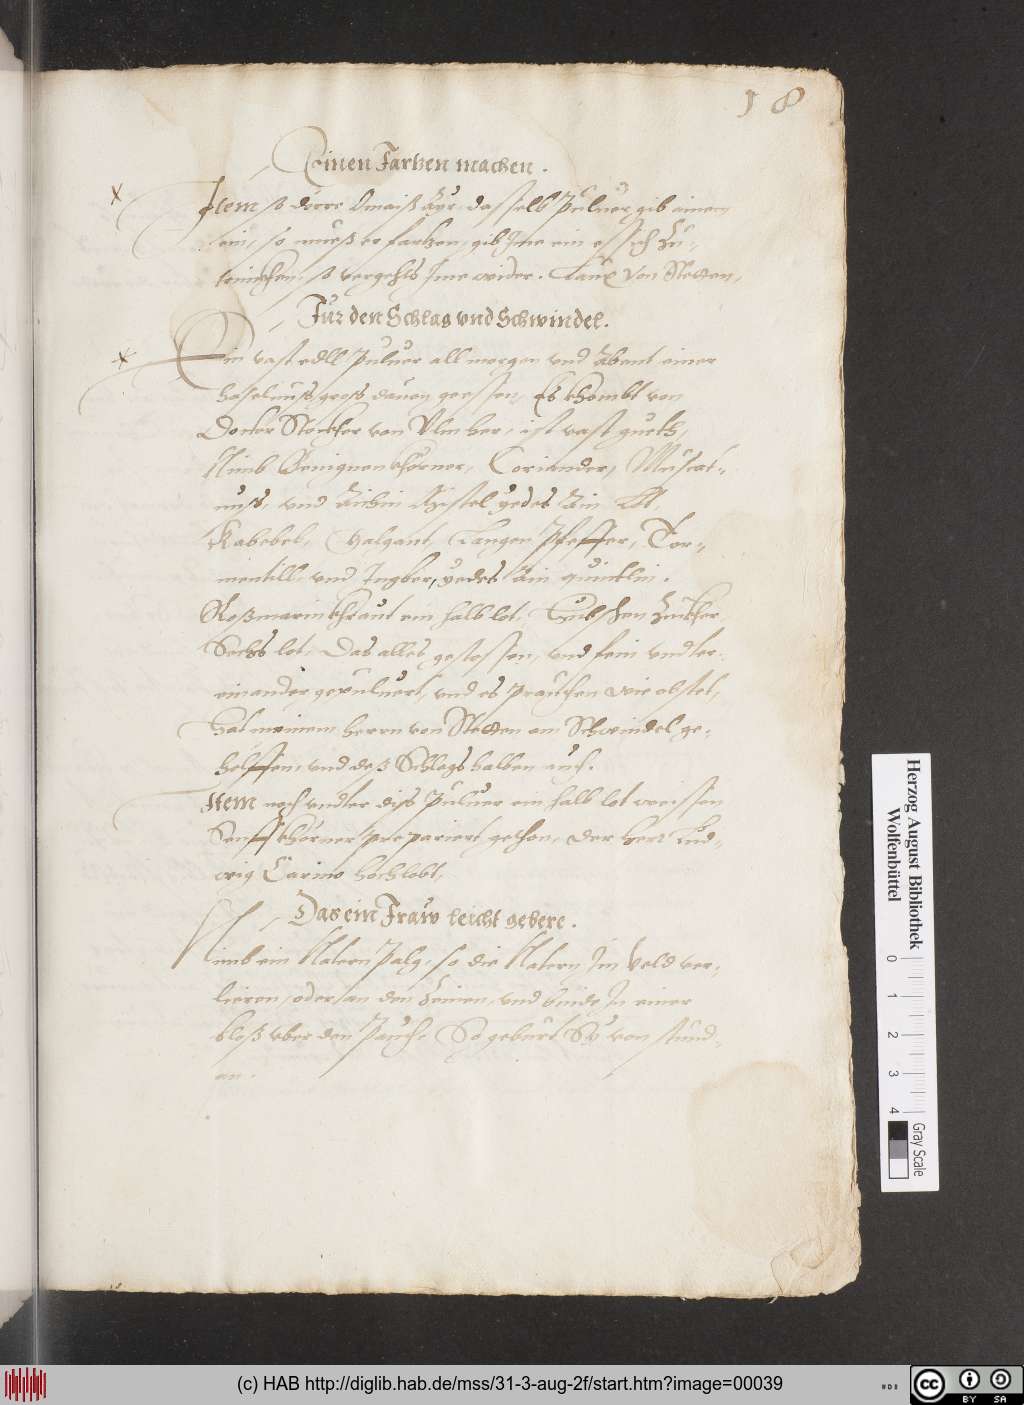 18
Einen Fartzen machen.
Item so dörre Omaiß Ayr, dasselb Puluer gib einem
ein, so mueß er fartzen, gib Ime ein essich Zu
trinckhen, so vergehts Ime wider. von Stetten.
Für den Schlag vnd Schwindel.
Ein vast edll Puluer all morgen vnd Abent einer
haselnuss gross dauon geessen, Es khombt von
Doctor Stockher von Vlm her, ist vast gueth,
Nimb Peonignen khörner, Coriander, Muscat-
nuss, und Aichin Mystel yedes Ain Lot,
Kabebel, Galgant, Langen Pfeffer, Tor-
mentill, vnd Ingber, yedes ain quintlin.
Roßmarin khraut ein halb lot, Zuckher
Sechs lot, Das alles gestossen, vnd fein vndter-
einander gepuluert, vnd es prauchen wie obstet,
Hat meinem herrn von Stetten am Schwindel ge-
holffen, vnd deß Schlags halben auch.
Item noch vndter diss Puluer ein halb lot weissen
Senff khörner prepariert gethon, der herr Lud-
wig Carino hoch lobt,
Das ein Fraw leicht gebere.
Nimb ein Natern Palg, so die Natern Im Veld ver-
lieren, oder an den Zeinen, vnd binde In einer
bloß vber den Pauch. So geburt Sy von stund-
an.
Herzog August Bibliothek
Wolfenbüttel
0 1 2 3 4
Gray Scale
(c) HAB http://diglib.hab.de/mss/31-3-aug-2f/start.htm?image=00039
cc BY SA